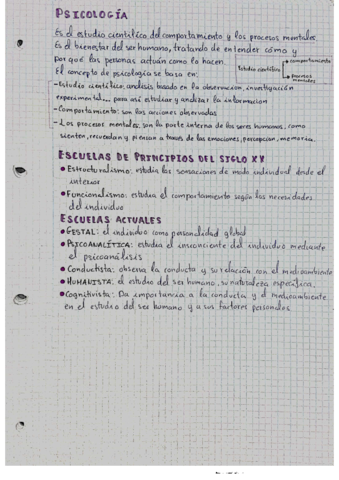 PSICOLOGÍA
Es el estudio científico del comportamiento y los procesos mentales.
Es el bienestar del ser humano, tratando de entender cómo y
por qué las personas actúan como lo hacen.
El concepto de psicología se basa en:
Estudio científico
comportamiento
procesos mentales
-Estudio científico: análisis basado en la observación, investigación
experimental... para así estudiar y analizar la información
-Comportamiento: son las acciones observadas
-Los procesos mentales: son la parte interna de los seres humanos, como
sienten, recuerdan y piensan a través de las emociones, percepción, memoria.
ESCUELAS DE PRINCIPIOS DEL SIGLO XX
• Estructuralismo: estudia las sensaciones de modo individual desde el
interior
• Funcionalismo: estudia el comportamiento según las necesidades
del individuo
ESCUELAS ACTUALES
• GESTAL: el individuo como personalidad global
• PSICOANALÍTICA: estudia el insconciente del individuo mediante
el psicoanálisis
• Conductista: observa la conducta y su relación con el medioambiente
• HUMANISTA: el estudio del ser humano, su naturaleza específica.
• Cognitivista: Da importancia a la conducta y el medioambiente
en el estudio del ser humano y a sus factores personales